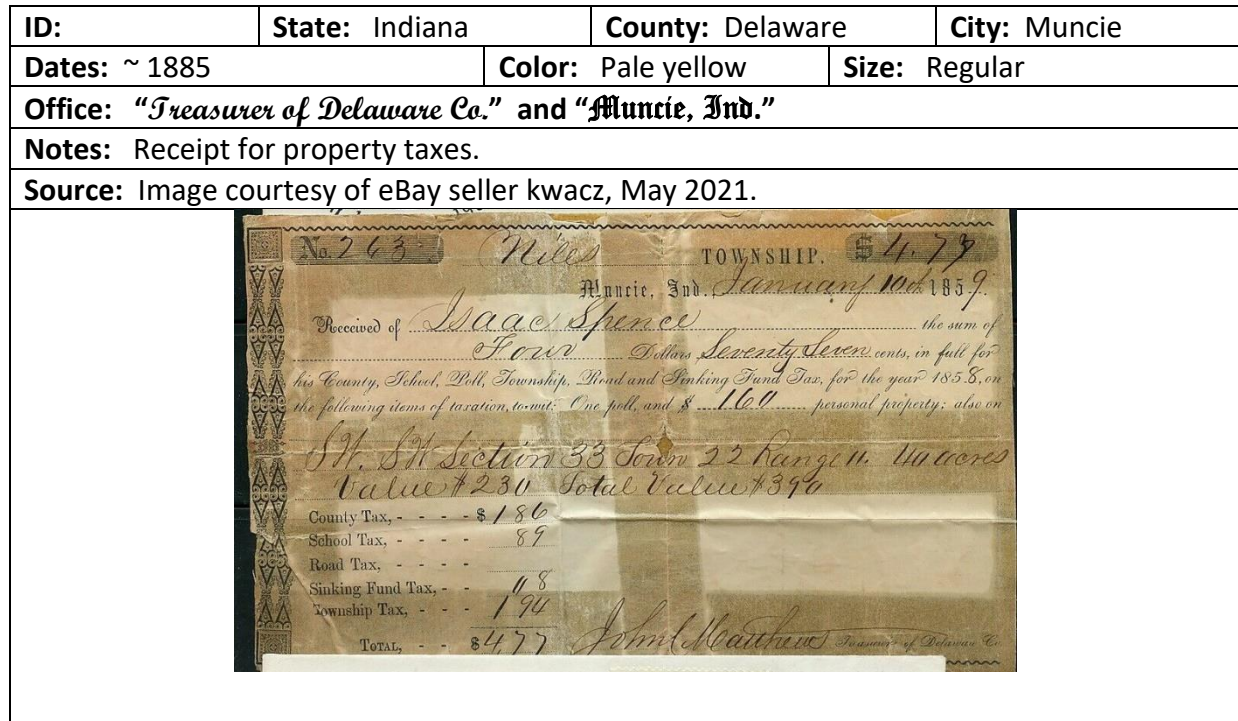 ID: State: Indiana County: Delaware City: Muncie
Dates: ~ 1885 Color: Pale yellow Size: Regular
Office: “Treasurer of Delaware Co.” and “Muncie, Ind.”
Notes: Receipt for property taxes.
Source: Image courtesy of eBay seller kwacz, May 2021.
No. 263 Niles TOWNSHIP. $ 4.77
Muncie, Ind. January 10th 1859.
Received of Isaac Spence the sum of
Four Dollars Seventy Seven cents, in full for
his County, School, Poll, Township, Road and Sinking Fund Tax, for the year 1858, on
the following items of taxation, to-wit: One poll, and $ 160 personal property; also on
SW. SW Section 33 Town 22 Range 11. 40 acres
Value $230 Total Value $390
County Tax, - - - - $ 1 86
School Tax, - - - - 89
Road Tax, - - - -
Sinking Fund Tax, - - 08
Township Tax, - - - 1 94
TOTAL, - - $4,77 John C Matthews Treasurer of Delaware Co